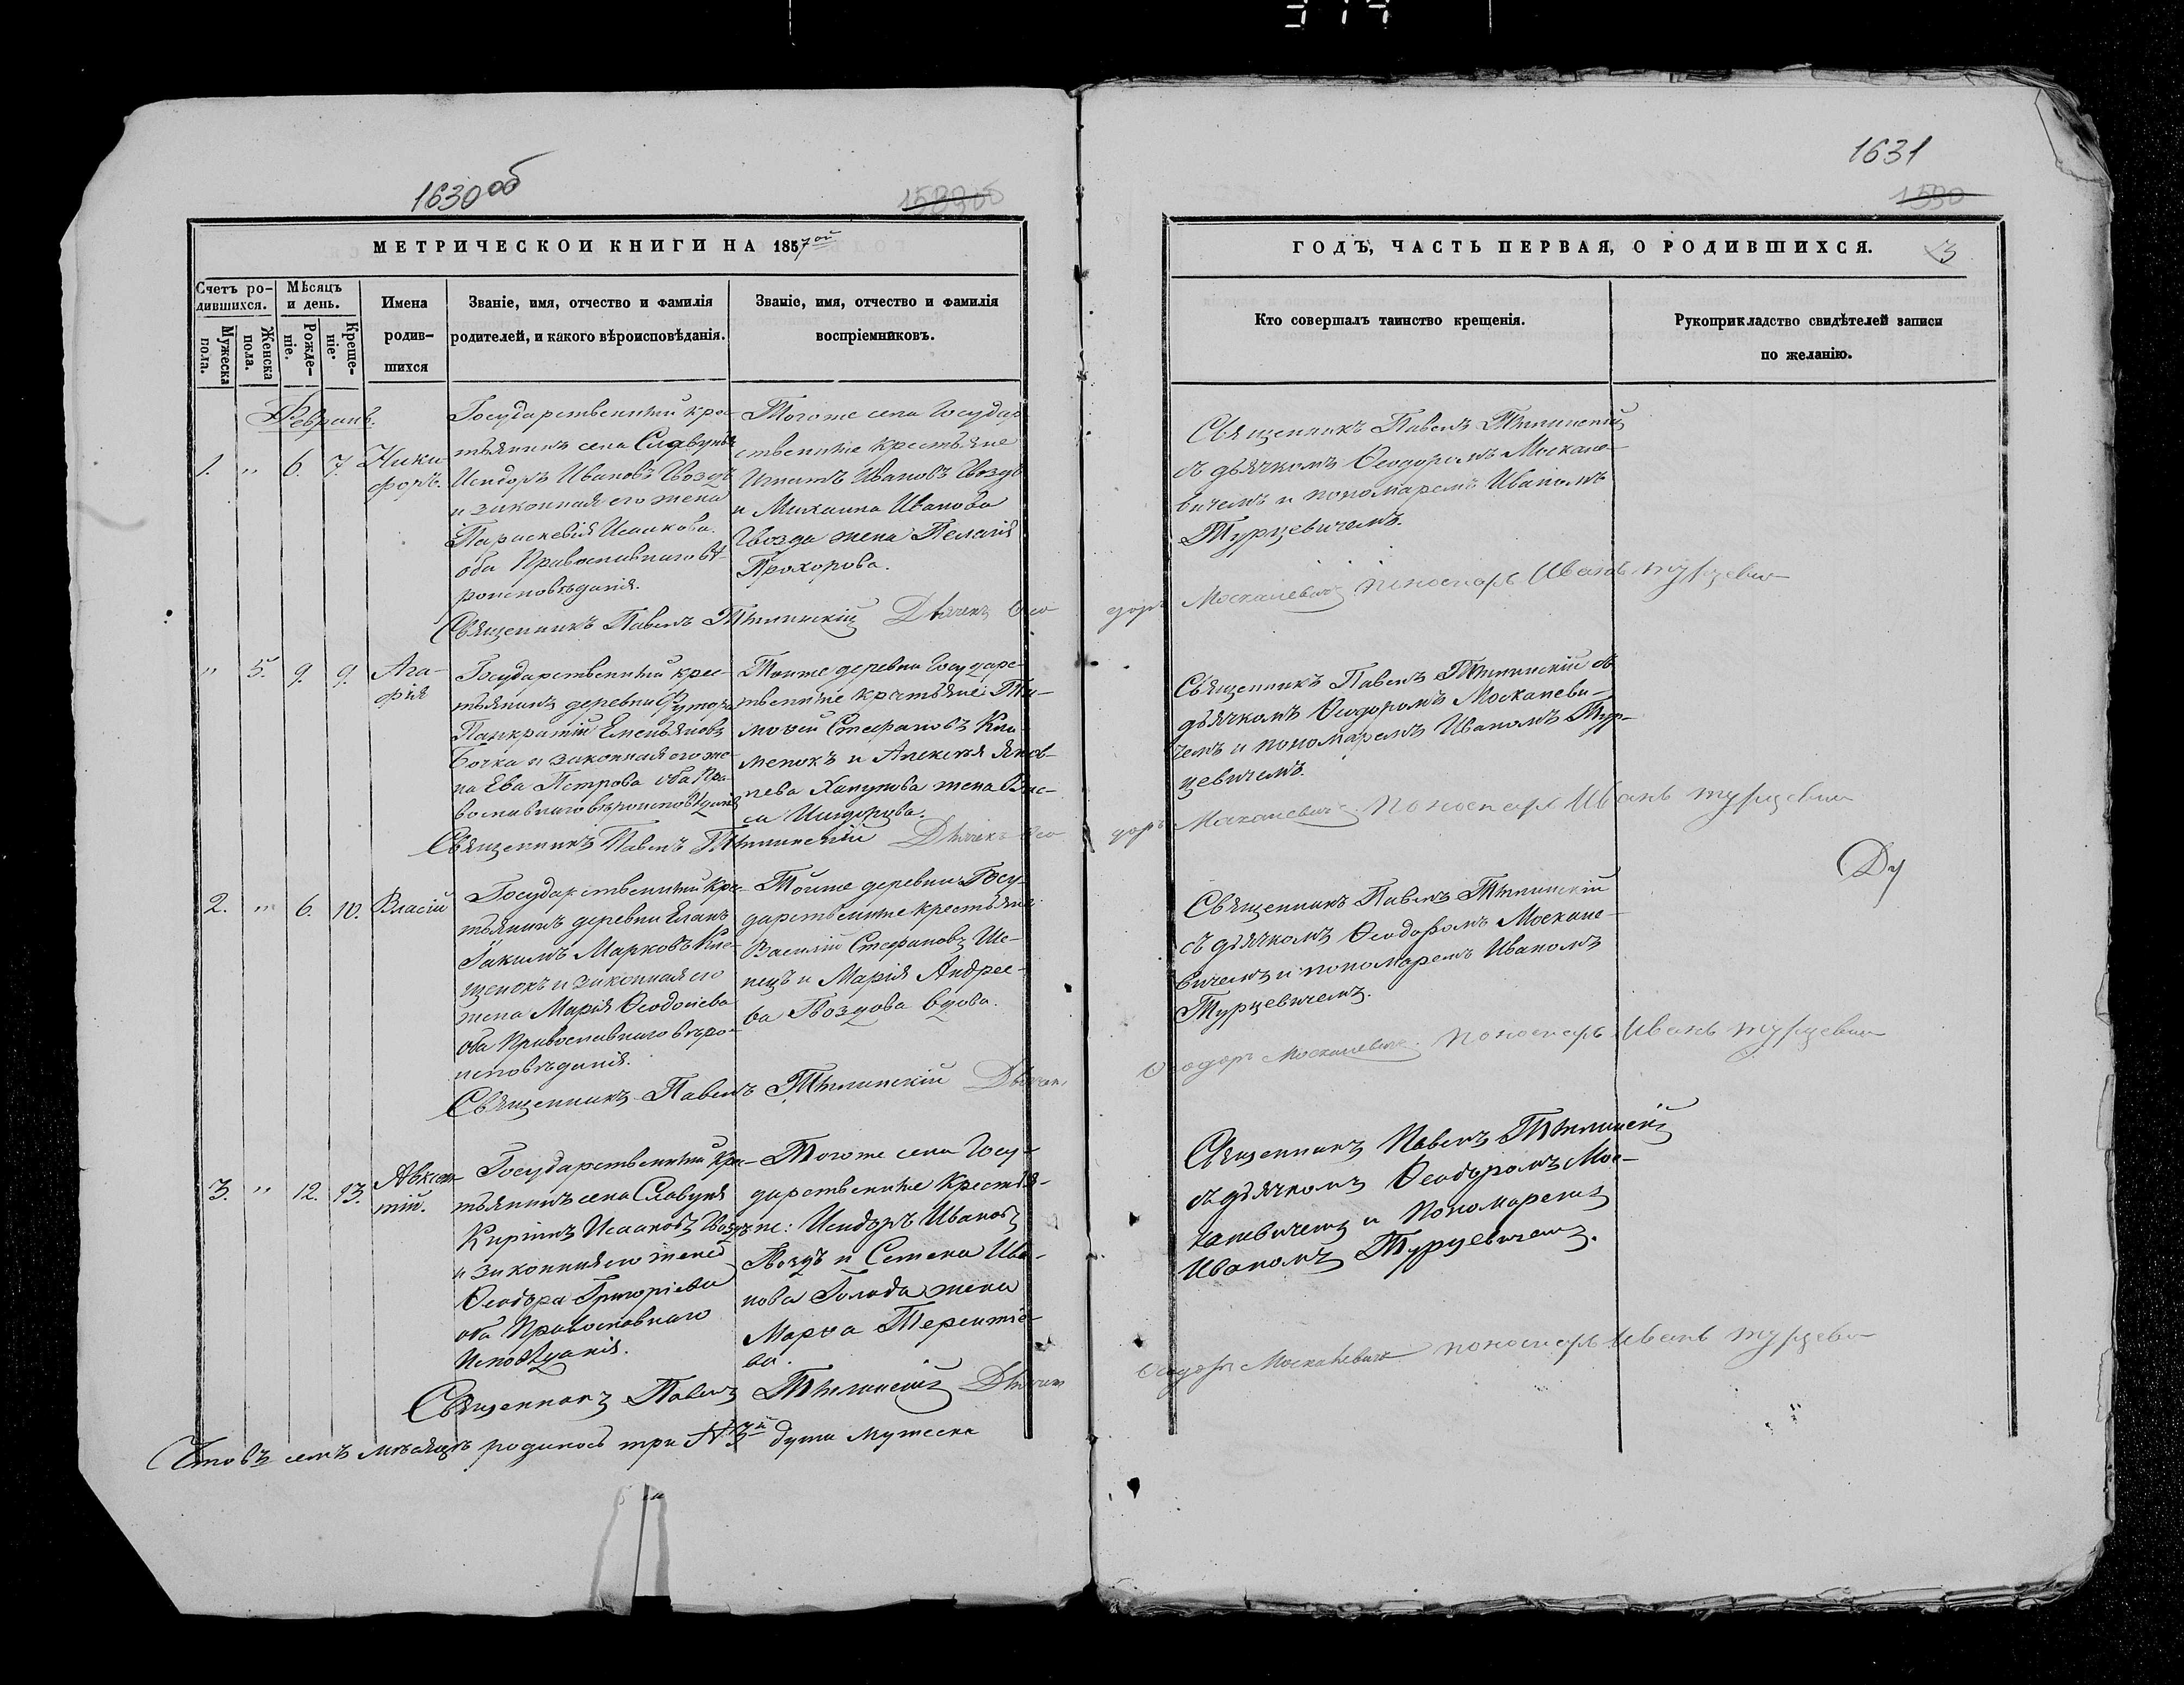 1630 об
1589 об
МЕТРИЧЕСКОИ КНИГИ НА 1857 ой
Счетъ ро-
дившихся.
Мужеска
пола.
Женска
пола.
Мѣсяцъ
и день.
Рожде-
ніе.
Креще-
ніе.
Имена
родив-
шихся
Званіе, имя, отчество и фамилія
родителей, и какого вѣроисповѣданія.
Званіе, имя, отчество и фамилія
воспріемниковъ.
Февраль.
1. " 6. 7. Ники-
форъ.
Государственный крес-
тьянинъ села Славуня
Исидоръ Ивановъ Гвоздъ
и законная его жена
Параскевія Исаакова.
оба Православнаго вѣ-
роисповѣданія.
Тогоже села Государ-
ственные крестьяне
Игнатъ Ивановъ Гвоздъ
и Михаила Иванова
Гвозда жена Пелагія
Прохорова.
Священникъ Павелъ Дьячекъ Ѳео
" 5. 9. 9. Ага-
фія
Государственный крес-
тьянинъ деревни
Панкратій Емельяновъ
Бочка и законная его же-
на Ева Петрова оба Пра-
вославнаго вѣроисповѣданія
Тойже деревни Государс-
твенные крестьяне Ти-
мофей Стефановъ Кли-
менокъ и Алексѣя Яков-
лева жена
Исидорова.
Священникъ Павелъ Дьячекъ Ѳео
2. " 6. 10. Власій
Государственный крес-
тьянинъ деревни
Іакимъ Марковъ Кле-
щенокъ и законная его
жена Марія Ѳеодосіева
оба Православнаго вѣро-
исповѣданія.
Тойже деревни Госу-
дарственные крестьяне
Василій Стефановъ
и Марія Андрее-
ва Гвоздова вдова.
Священникъ Павелъ Дьячекъ
3. " 12. 13. Авксен-
тій.
Государственный крес-
тьянинъ села Славуня
Кириллъ Исааковъ Гвоздъ
и законная его жена
Ѳеодора Григоріева
оба Православнаго
Исповѣданія.
Тогоже села Госу-
дарственные Крестья-
не: Исидоръ Ивановъ
Гвоздъ и Семена Ива-
нова Голода жена
Марѳа Терентіе-
ва.
Священникъ Павелъ Дьячекъ
Итого въ семъ мѣсяцѣ родилось три № 3 й души мужеска
1631
1590
ГОДЪ, ЧАСТЬ ПЕРВАЯ, О РОДИВШИХСЯ.
3
Кто совершалъ таинство крещенія.
Рукоприкладство свидѣтелей записи
по желанію.
Священникъ Павелъ
съ дьячкомъ Ѳеодоромъ Москале-
вичемъ и пономаремъ Иваномъ
Турцевичемъ.
доръ Москалевичъ Пономарь Иванъ Турцевич
Священникъ Павелъ съ
дьячкомъ Ѳеодоромъ Москалеви-
чемъ и пономаремъ Иваномъ Тур-
цевичемъ.
доръ Москалевичъ. Пономарь Иванъ Турцевич
Священникъ Павелъ
съ дьячкомъ Ѳеодоромъ Москале-
вичемъ и пономаремъ Иваномъ
Турцевичемъ.
Ѳеодоръ Москалевичъ. Пономарь Иванъ Турцевич
Священникъ Павелъ
съ дьячкомъ Ѳеодоромъ Мос-
калевичемъ и Пономаремъ
Иваномъ Турцевичемъ.
Ѳеодоръ Москалевичъ Пономарь Иванъ Турцевич